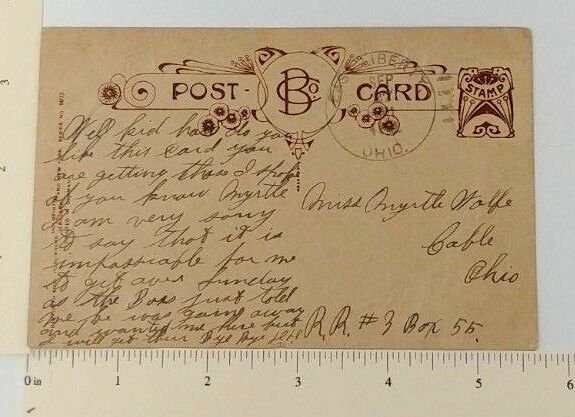 POST CARD
B Co.
LIBERTY
SEP
OHIO.
STAMP
Well kid how do you
like this card you
are getting those I spoke
of you know Myrtle
I am very sorry
to say that it is
impossiable for me
to get over Sunday
as the Boss just told
me he was going away
and wanted me here but
I will get their Bye Bye
Miss Myrtle Wolfe
Cable
Ohio
R.R. #3 Box 55.
0 in 1 2 3 4 5 6
3
2